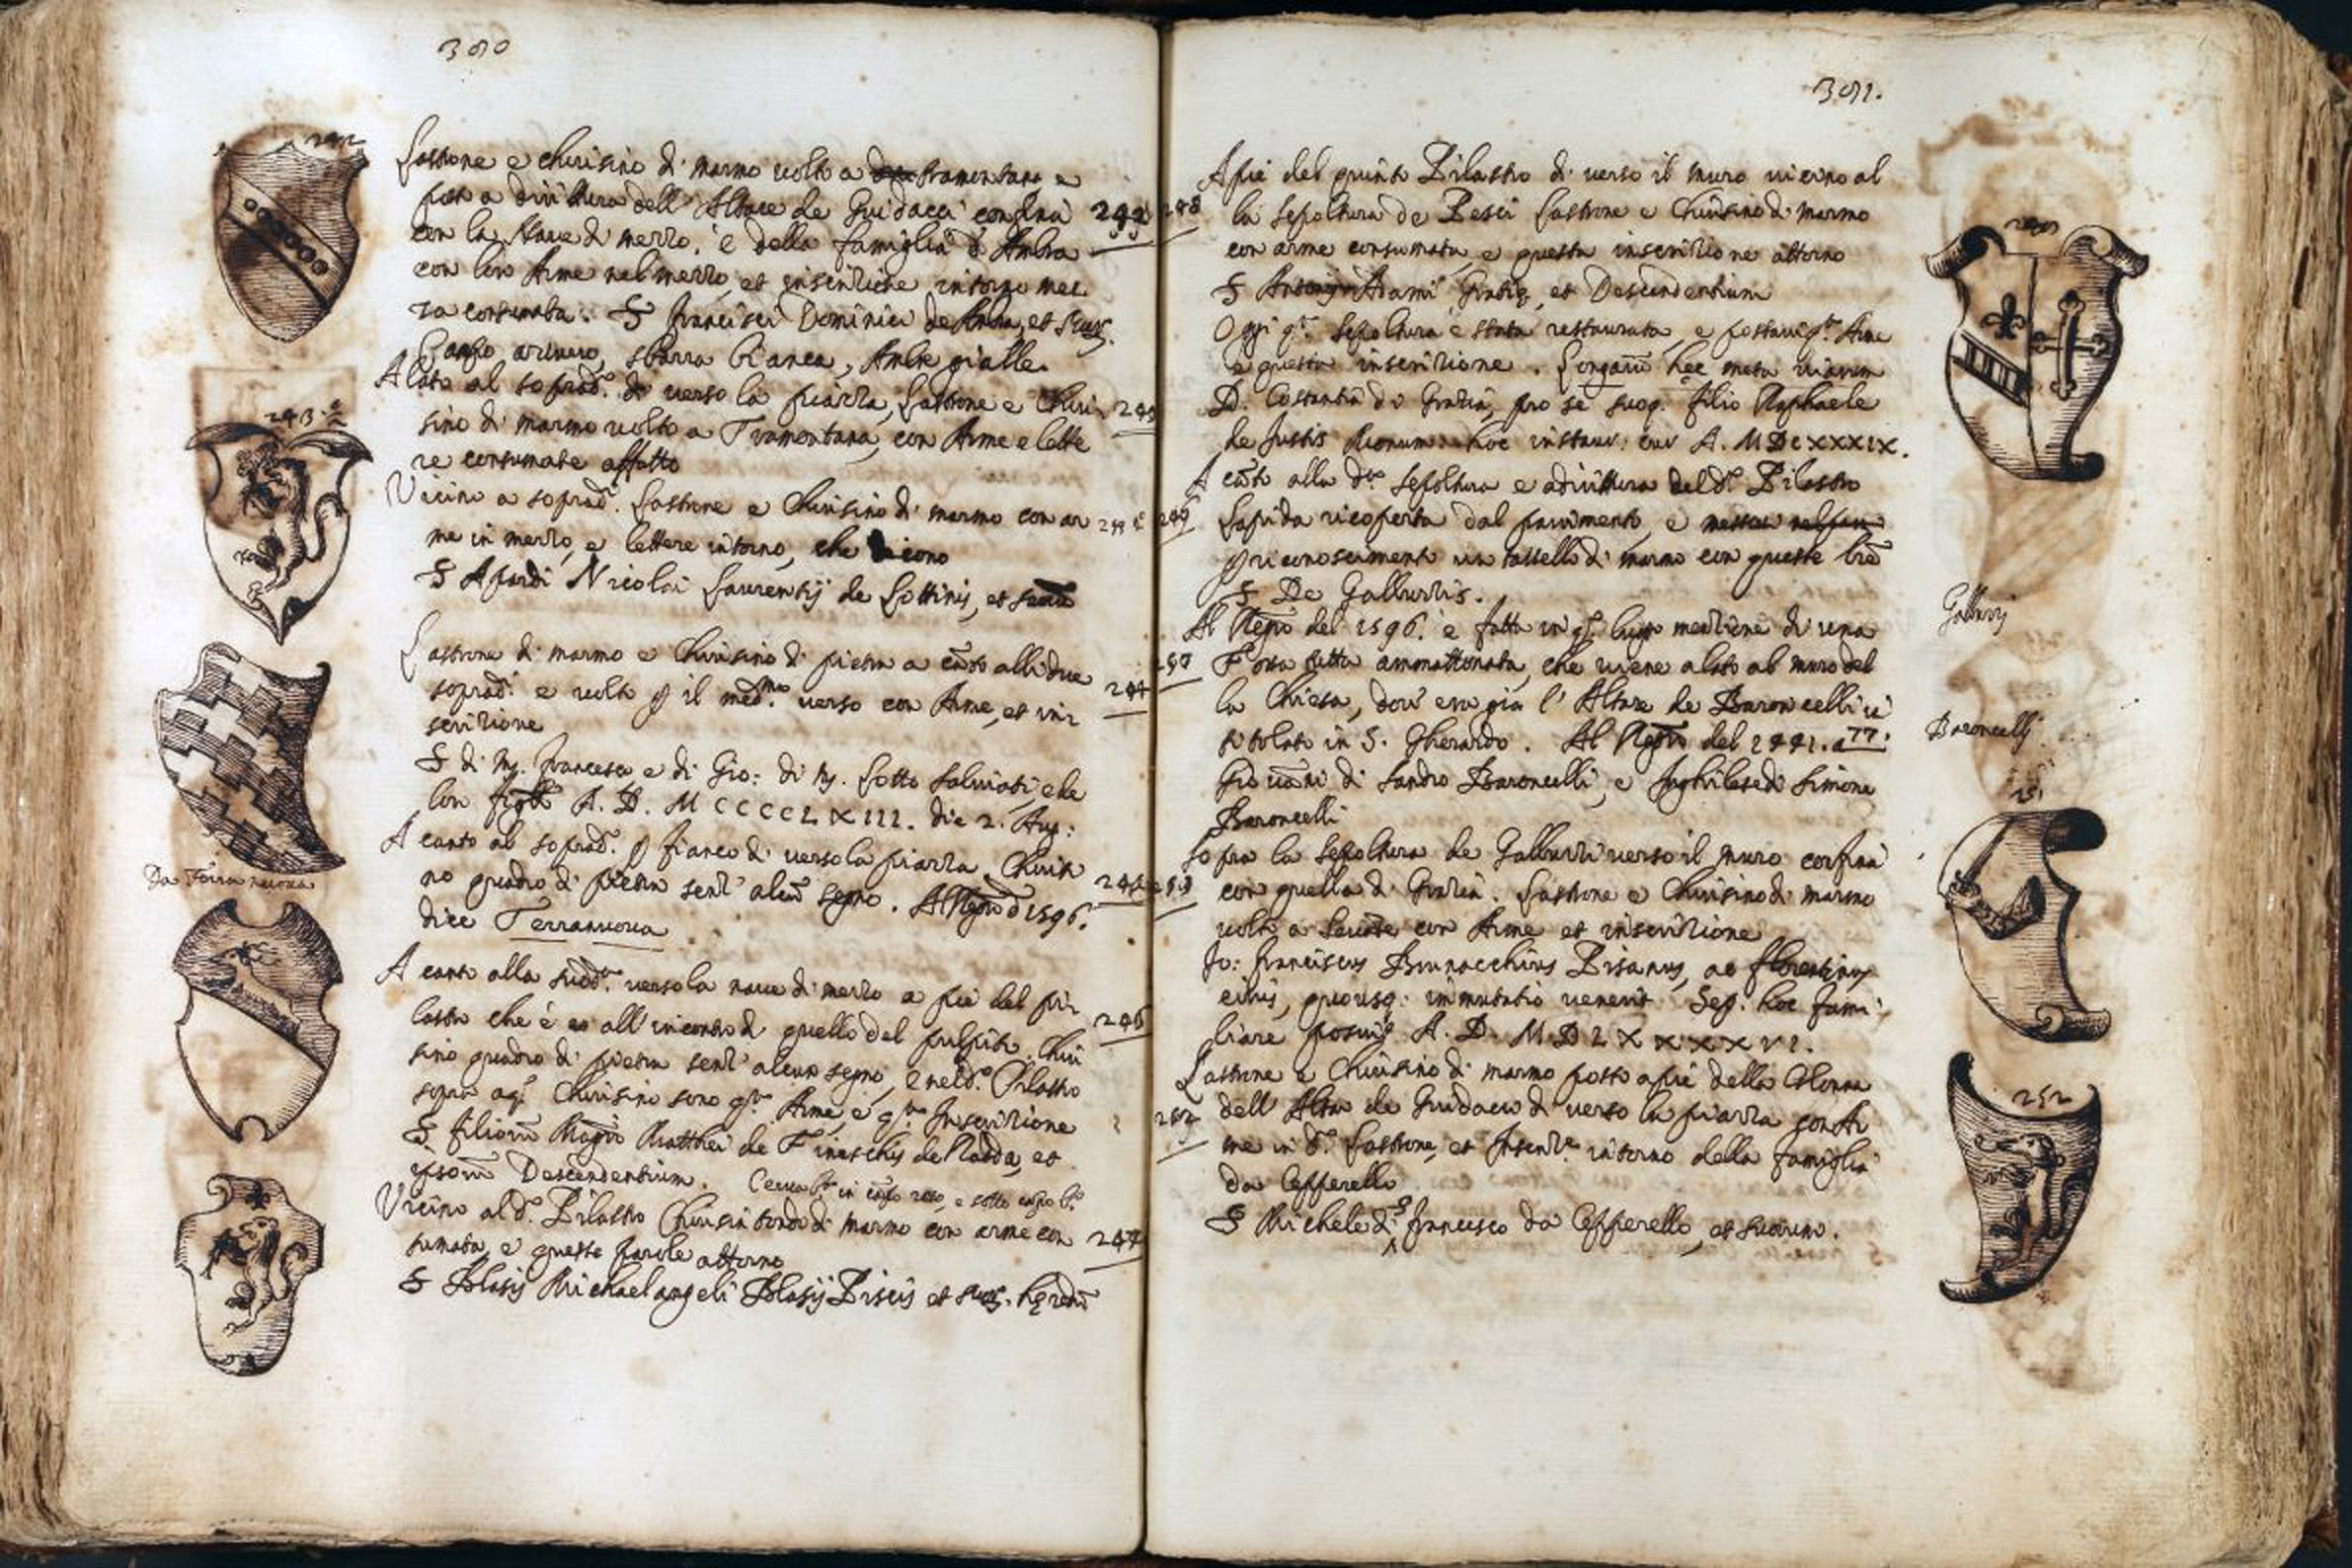 390
242
Lastrone e chiusino di marmo volto a tramontana e
posto a dirittura dell'Altare de Guidacci confina
con la Nave di mezzo, è della famiglia d'Ambra
con loro Arme nel mezzo, et inscrizione intorno mez
za consumata. S Francisci Dominici de Ambra, et suor.
Campo azzurro, sbarra bianca, Ambre gialle.
243
A lato al soprad.o di verso la piazza, Lastrone e Chiu
sino di marmo volto a Tramontana, con Arme e lette
re consumate affatto
Vicino a soprad. Lastrone e Chiusino di marmo con ar
me in mezzo, e lettere intorno, che dicono
S Apardi Nicolai Laurentij de Lottinis, et
Lastrone di marmo e Chiusino di pietra a canto alli due
244
soprad.i e volto p il med.mo verso con Arme, et in
scrizione
S di M. Francesco e di Gio: di M. Lotto Salviati, e de
lor figli A. D. M C C C C L X I I I. die 2. Aug:
A canto al soprad.o p fianco di verso la piazza. Chiusi
no quadro di pietra senz' alcu segno. Al Regro d 1596.
245
dice Terranuova
Da Terra nuova
A canto alla sudd.a verso la nave di mezzo a piè del pi
lastro che è all'incontro di quello del pulpito. Chiu
246
sino quadro di pietra senz' alcun segno, e nel d.o Pilastro
sopra a q.o Chiusino sono q.ta Arme, e q.ta Inscrizione
S filiorū Magri Matthei de Fineschis de Radda, et
ipsorū Descendentium. Cerva b.a in campo rosso, e sotto campo b.o
Vicino al d.o Pilastro Chiusin tondo di marmo con arme con
247
sumata, e queste parole attorno
S Blasij Michaelangeli Blasij Piscis et suor. heredū
391.
248
A piè del quinto Pilastro di verso il muro vicino al
la sepoltura de Pesci Lastrone e Chiusino di marmo
con arme consumata, e questa inscrizione attorno
S Adami Gratię, et Descendentium
Oggi q.ta sepoltura è stata restaurata, e postavi q.ta Arme
e questa inscrizione. Longarū hęc meta viarum
D. Costantia di Grazia, pro se suoq. filio Raphaele
de Justis hoc instaur: cur A. MDCXXXIX.
A cāto alla d.a sepoltura e a dirittura del d.o Pilastro
249
Lapida ricoperta dal pavimento, e
p riconoscimento un tassello di marmo con queste lrē
S De Gallurzis.
Galluzzi
Al Regro del 1596. è fatta in q.o luogo menzione di una
250
Fossa tutta ammattonata, che viene a lato al muro del
la Chiesa, dov' era gia l' Altare de Baroncelli i
titolato in S. Gherardo. Al Regro del 1441. a 77.
Baroncelli
Giovāni di Sandro Baroncelli, e Inghilese di Simone
Baroncelli
251
Sopra la sepoltura de Gallurzi verso il muro confina
con quella di Grazia. Lastrone e Chiusino di marmo
volto a Levāte con Arme et inscrizione
Jo: Franciscus Brunacchius Pisanus, ac florentinus
civis, quousq: immutatio veneris Sep. hoc fami
liare posuit A. D. M D L X X X X V I.
Lastrone e Chiusino di marmo posto a piè della Colonna
252
dell' Altare de Guidacci di verso la piazza con Ar
me in d.o Lastrone, et Inscriz.e intorno della famiglia
da Cepperello
S Michele di S Francesco da Cepperello, et suorum.